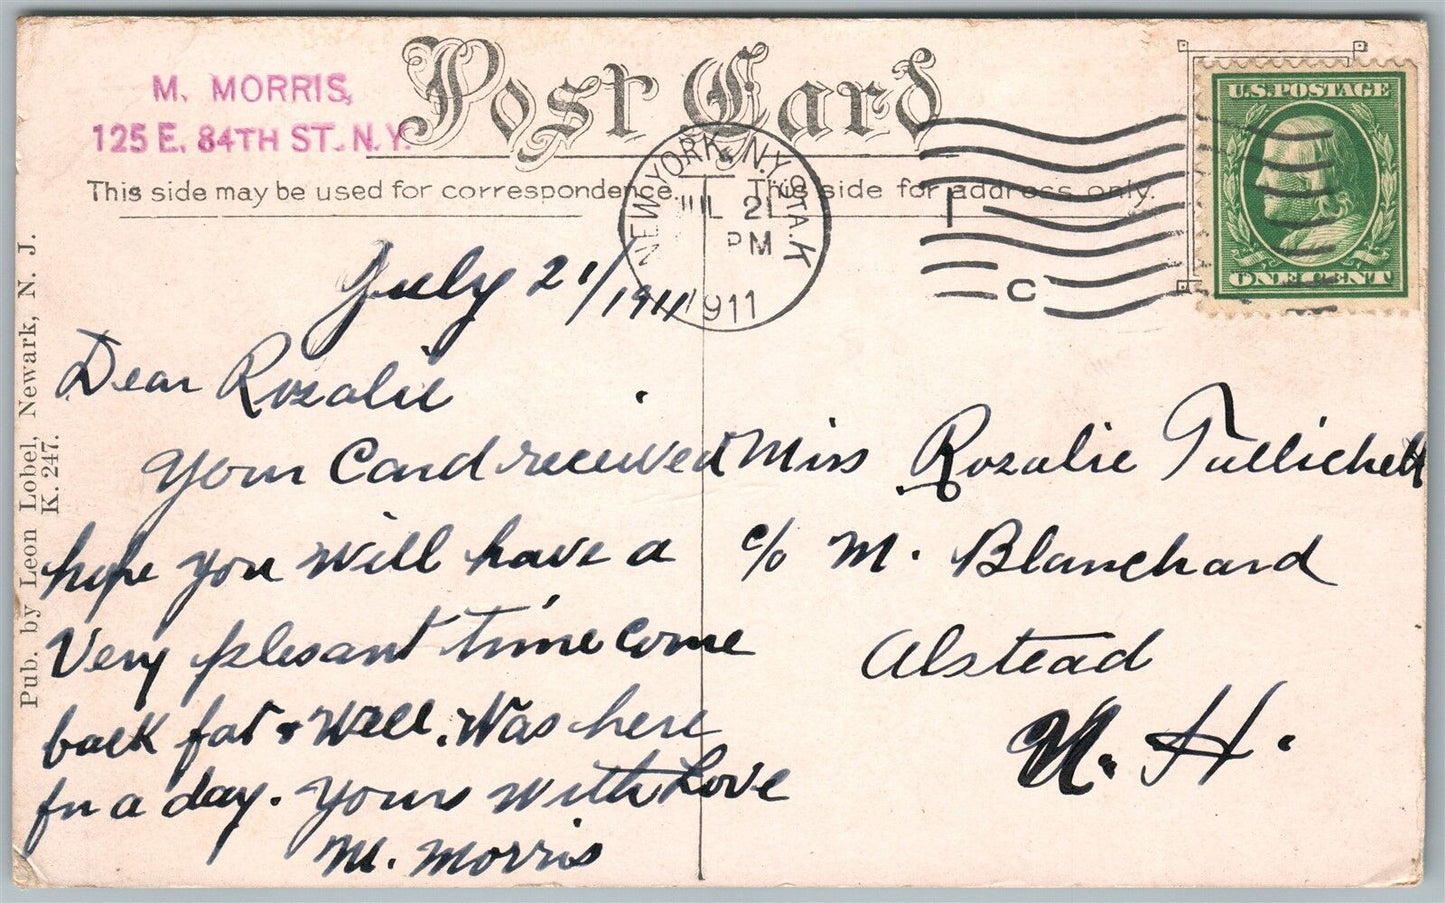 M. MORRIS,
125 E. 84TH ST. N.Y.
Post Card
This side may be used for correspondence.
This side for address only.
NEW YORK, N.Y. STA. K
JUL 21
PM
1911
C
U.S. POSTAGE
ONE CENT
Pub. by Leon Lobel, Newark, N. J.
K. 247.
July 21/1911
Dear Rozalie
Your Card received
hope you will have a
Very plesant time Come
back fat & Well. Was here
for a day. Yours with Love
M. Morris
Miss Rozalie
c/o M. Blanchard
Alstead
N. H.